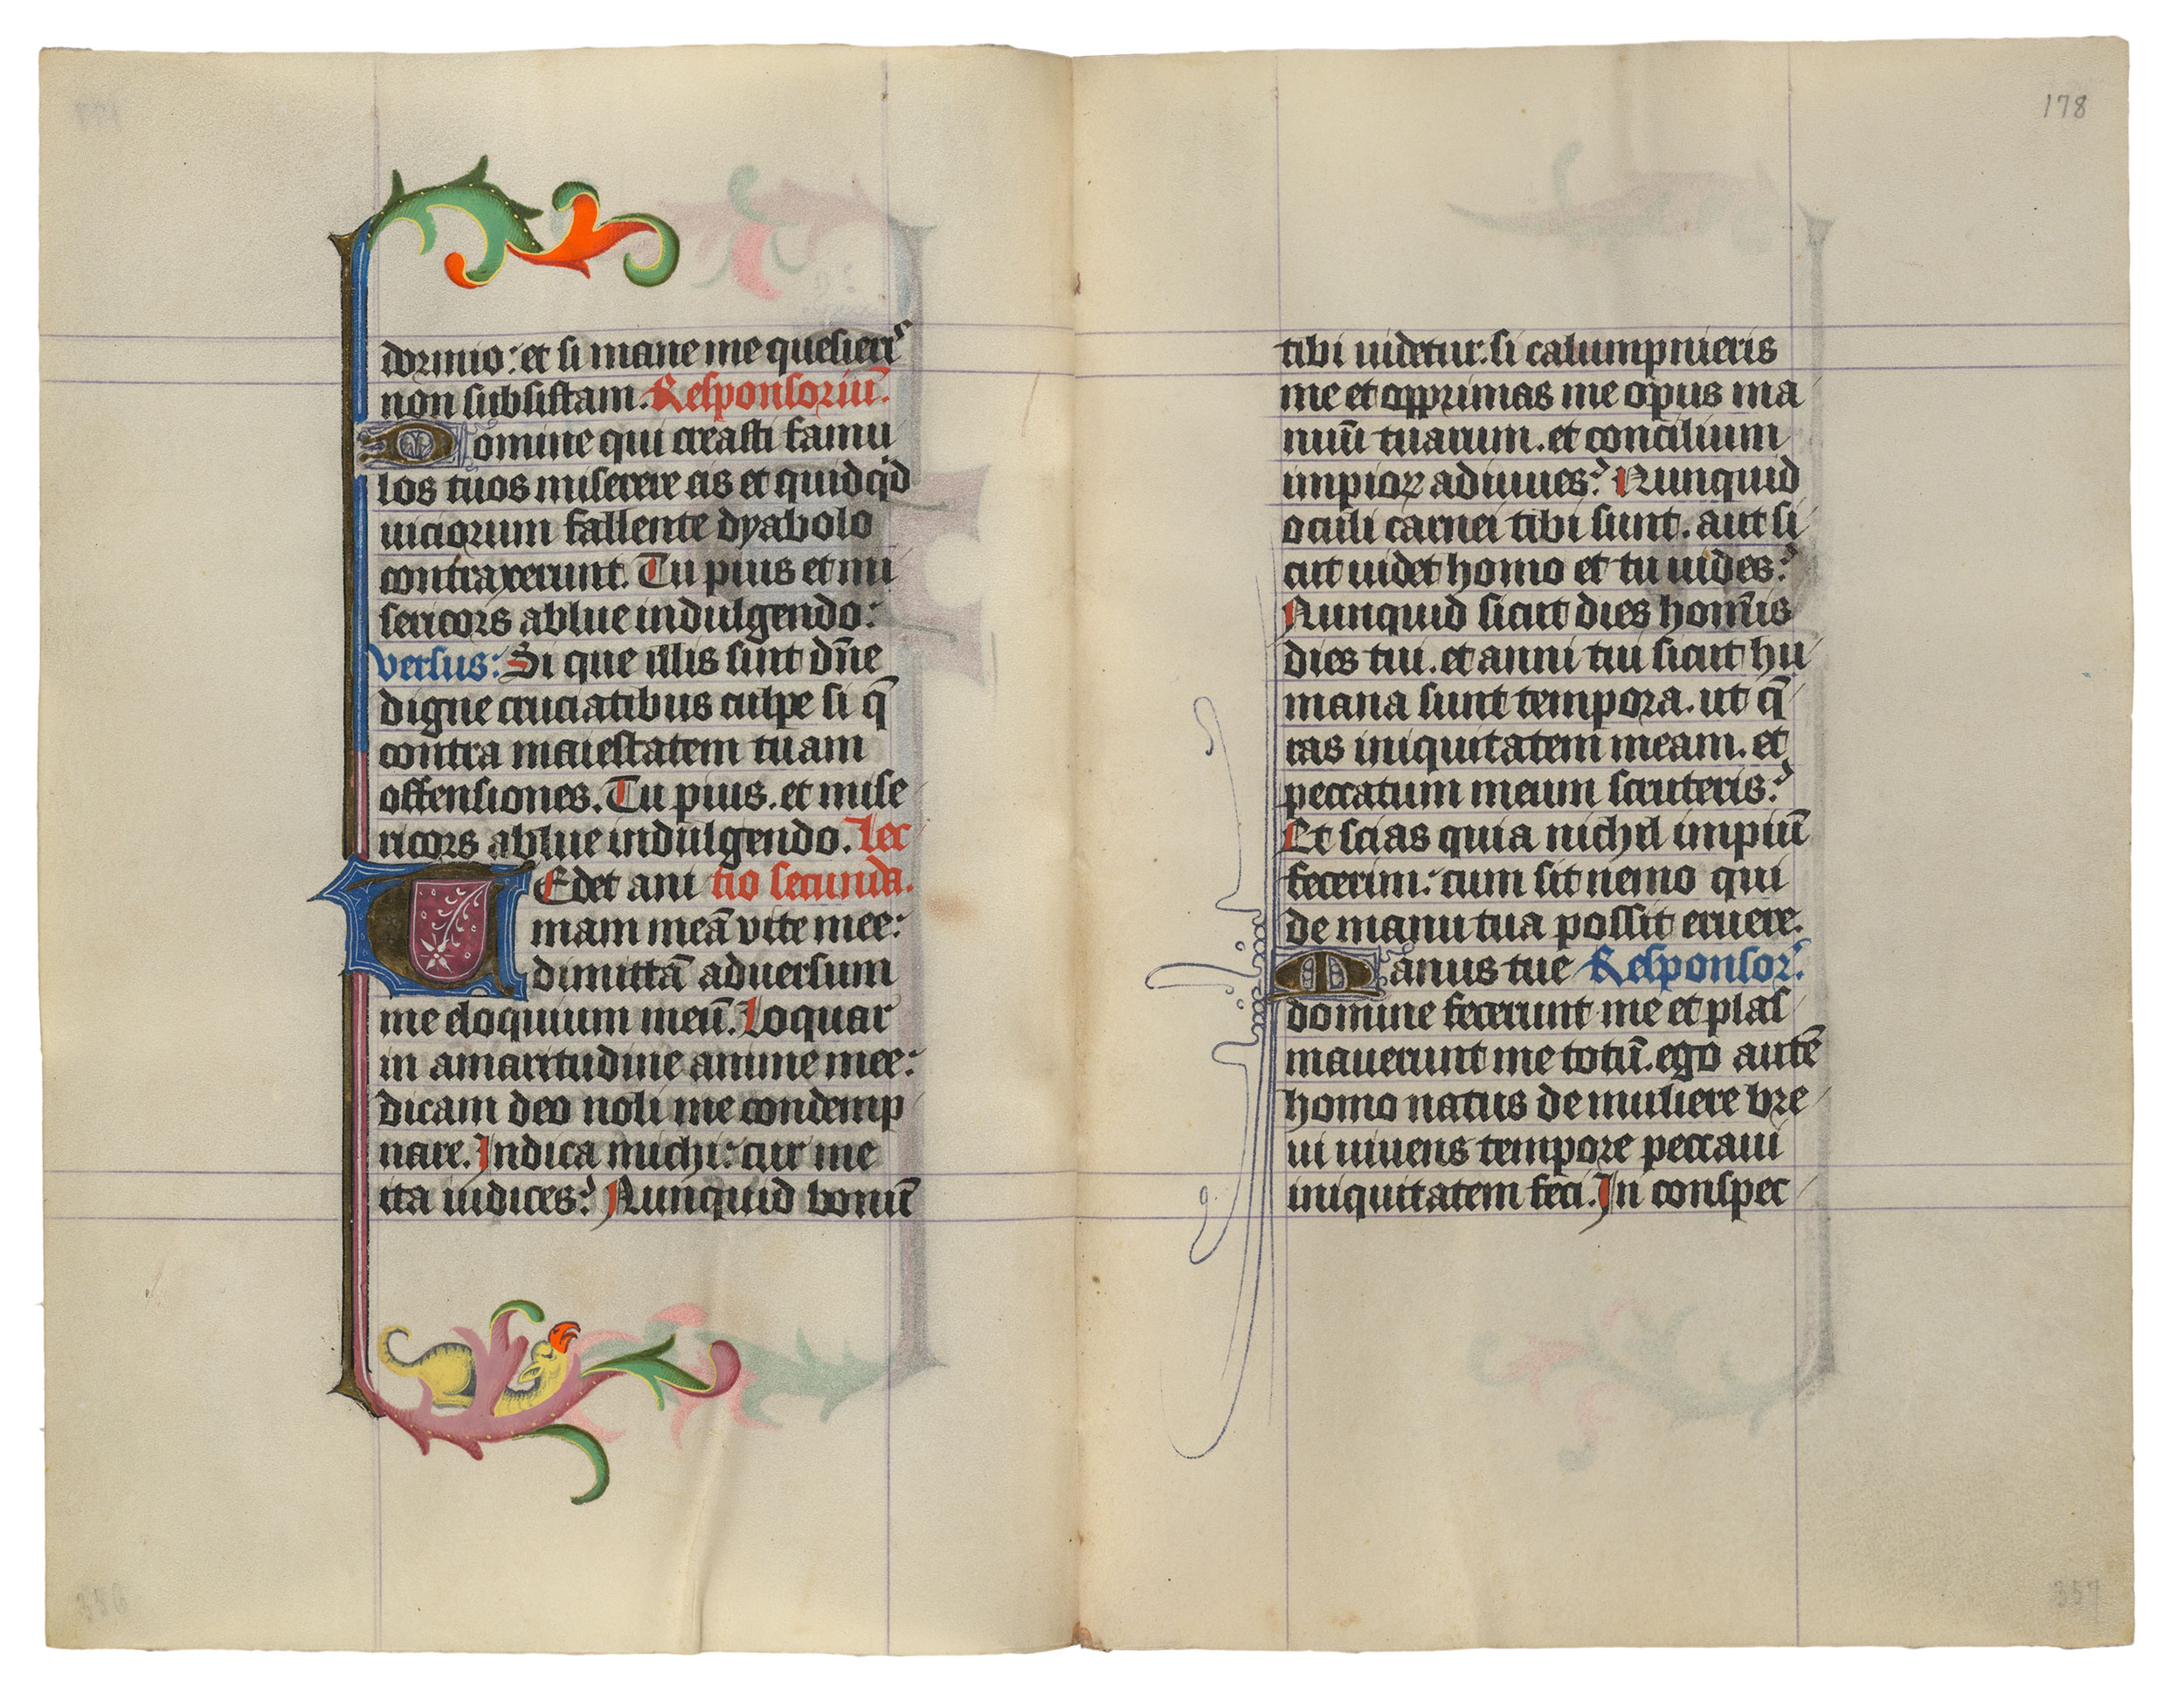 dormio: et si mane me quesieris
non subsistam. Responsoriū.
Domine qui creasti famu
los tuos miserere eis et quidqͥd
uiciorum fallente dyabolo
contraxerunt. Tu pius et mi
sericors ablue indulgendo:
versus: Si que illis sint dn̄e
digne cruciatibus culpe si q̄
contra maiestatem tuam
offensiones. Tu pius. et mise
ricors ablue indulgendo. Lec
TEdet ani tio secunda.
mam meā vite mee:
dimittā aduersum
me eloquium meū. Loquar
in amaritudine anime mee:
dicam deo noli me condemp
nare. Indica michi: cur me
ita iudices? Nunquid bonū
178
tibi uidetur: si calumpnieris
me et opprimas me opus ma
nuū tuarum. et concilium
impioꝝ adiuues? Nunquid
oculi carnei tibi sunt. aut si
cut uidet homo et tu uides?
Nunquid sicut dies homīs
dies tui. et anni tui sicut hu
mana sunt tempora. ut q̄
ras iniquitatem meam. et
peccatum meum scruteris?
Et scias quia nichil impiū
fecerim: cum sit nemo qui
de manu tua possit eruere.
Manus tue Responsor.
domine fecerunt me et plas
mauerunt me totū. ego autē
homo natus de muliere bre
ui uiuens tempore peccaui
iniquitatem feci. In conspec
357